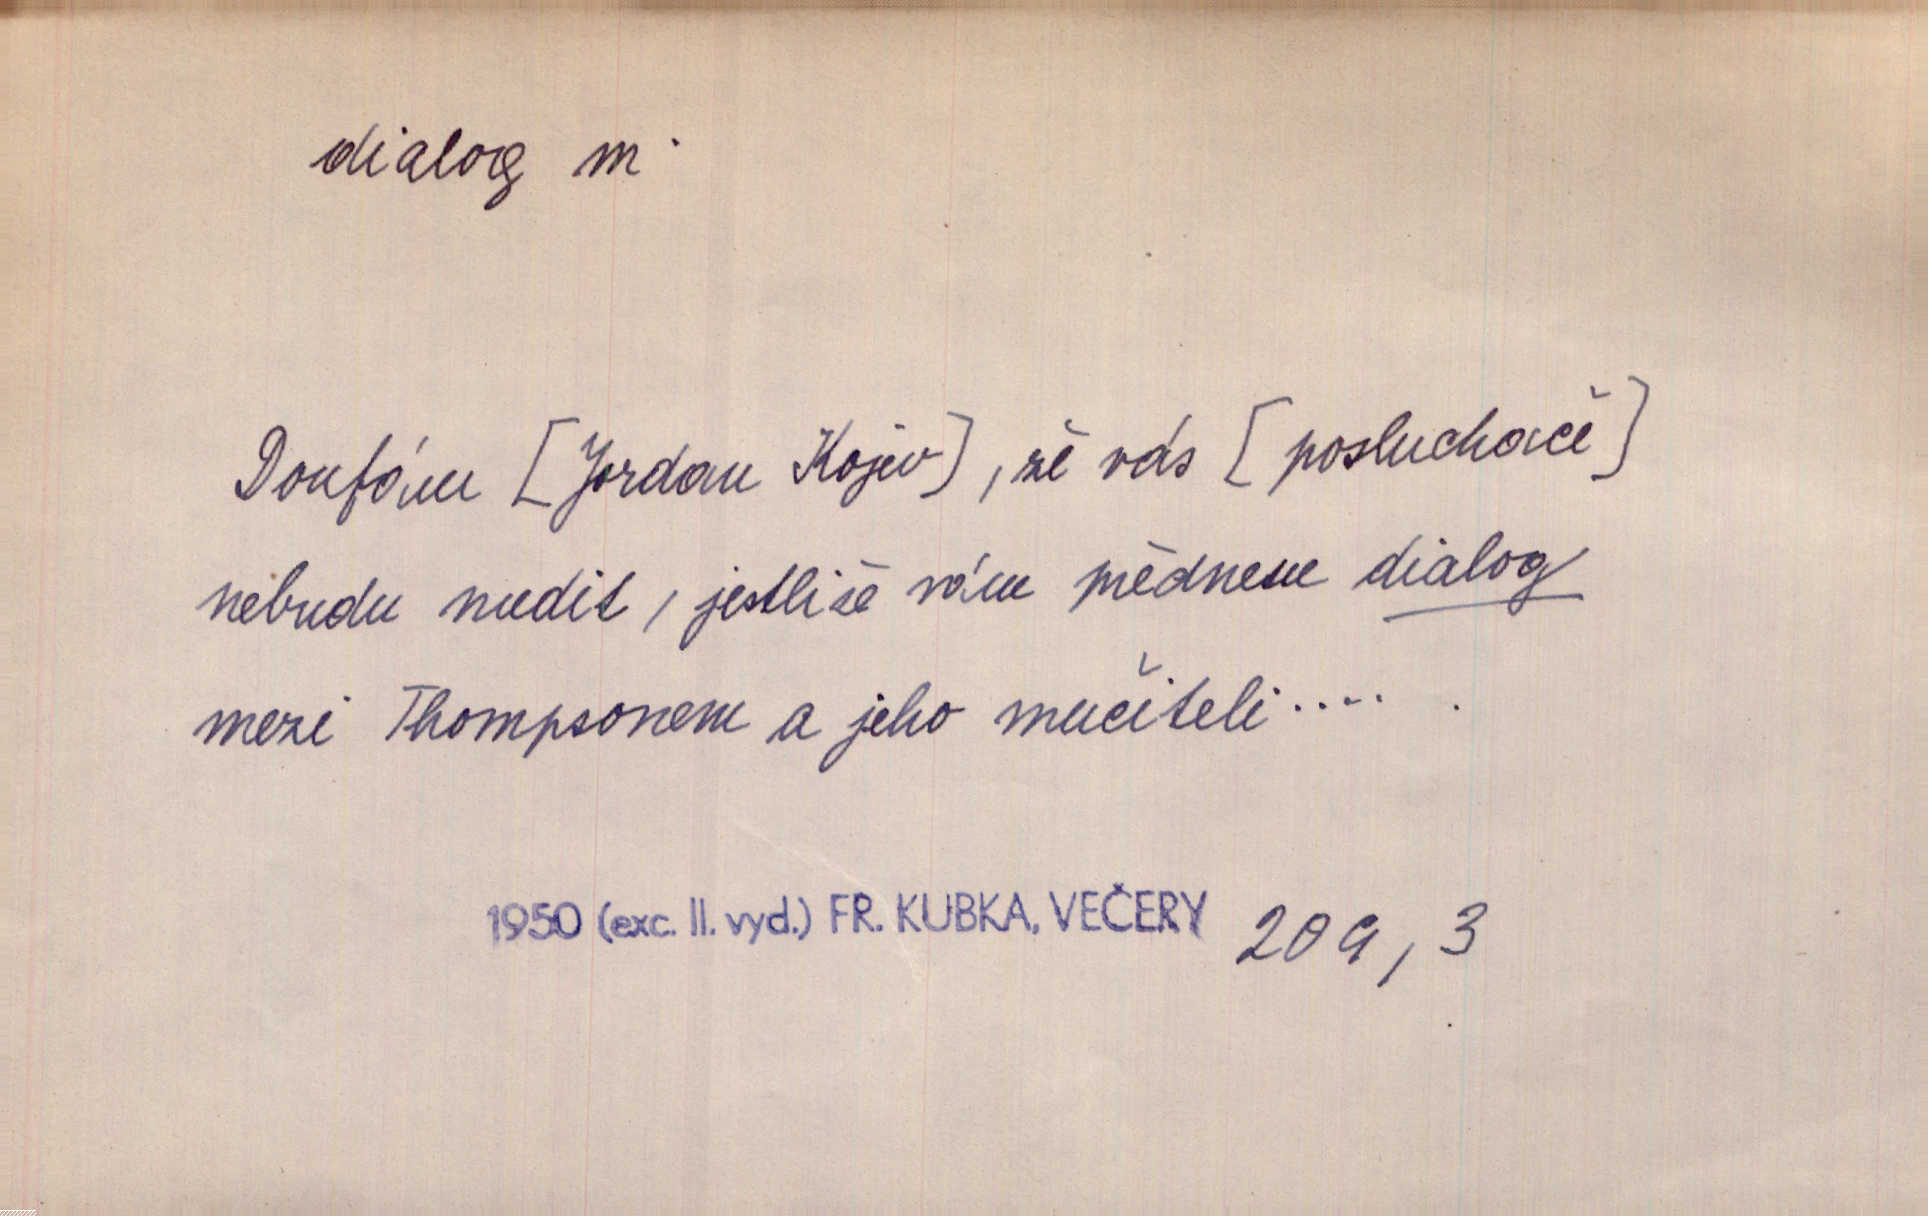 dialog m.
Doufám [Jordan Kojev], že vás [posluchače]
nebudu nudit, jestliže vám přednesu dialog
mezi Thompsonem a jeho mučiteli....
1950 (exc. II. vyd.) FR. KUBKA, VEČERY 209, 3